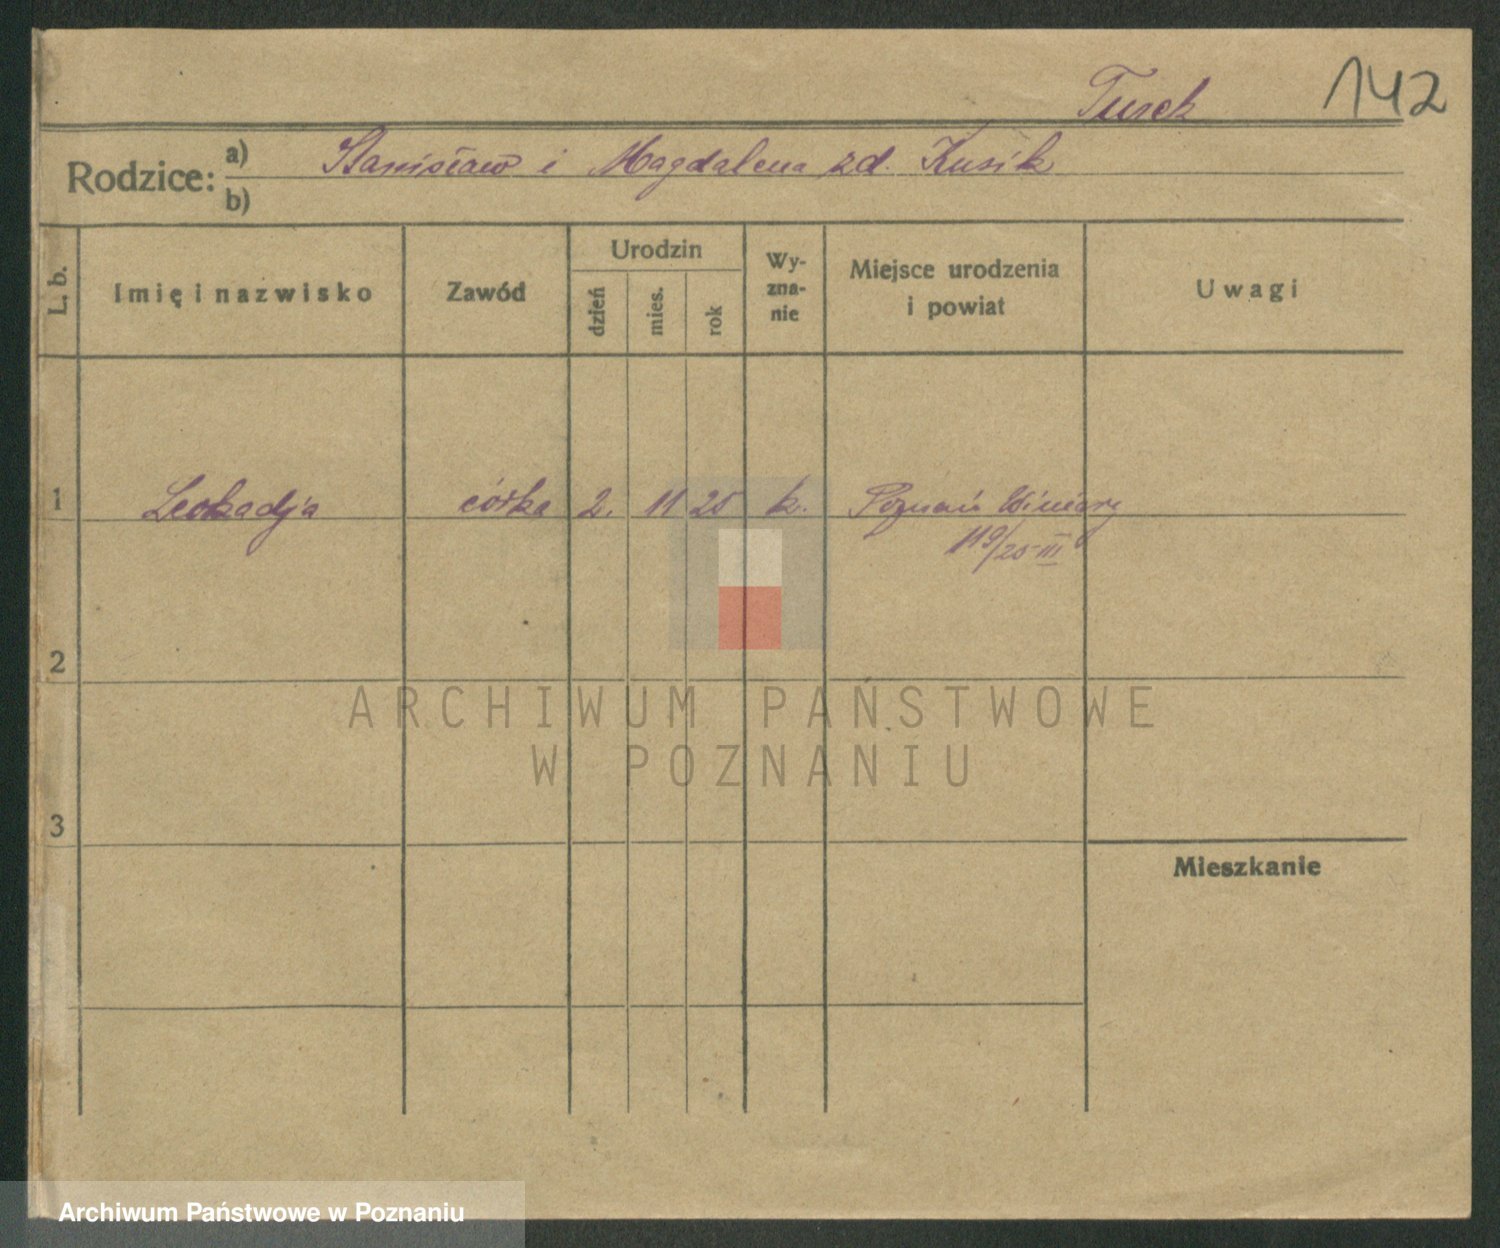 Turek 142
Rodzice: a) Stanisław i Magdalena zd. Kusik
b)
L. b. Imię i nazwisko Zawód Urodzin dzień mies. rok Wy-zna-nie Miejsce urodzenia i powiat Uwagi
1 Leokadja córka 2. 11 25 k. Poznań Winiary
119/25 III
2
ARCHIWUM PAŃSTWOWE
W POZNANIU
3
Mieszkanie
Archiwum Państwowe w Poznaniu